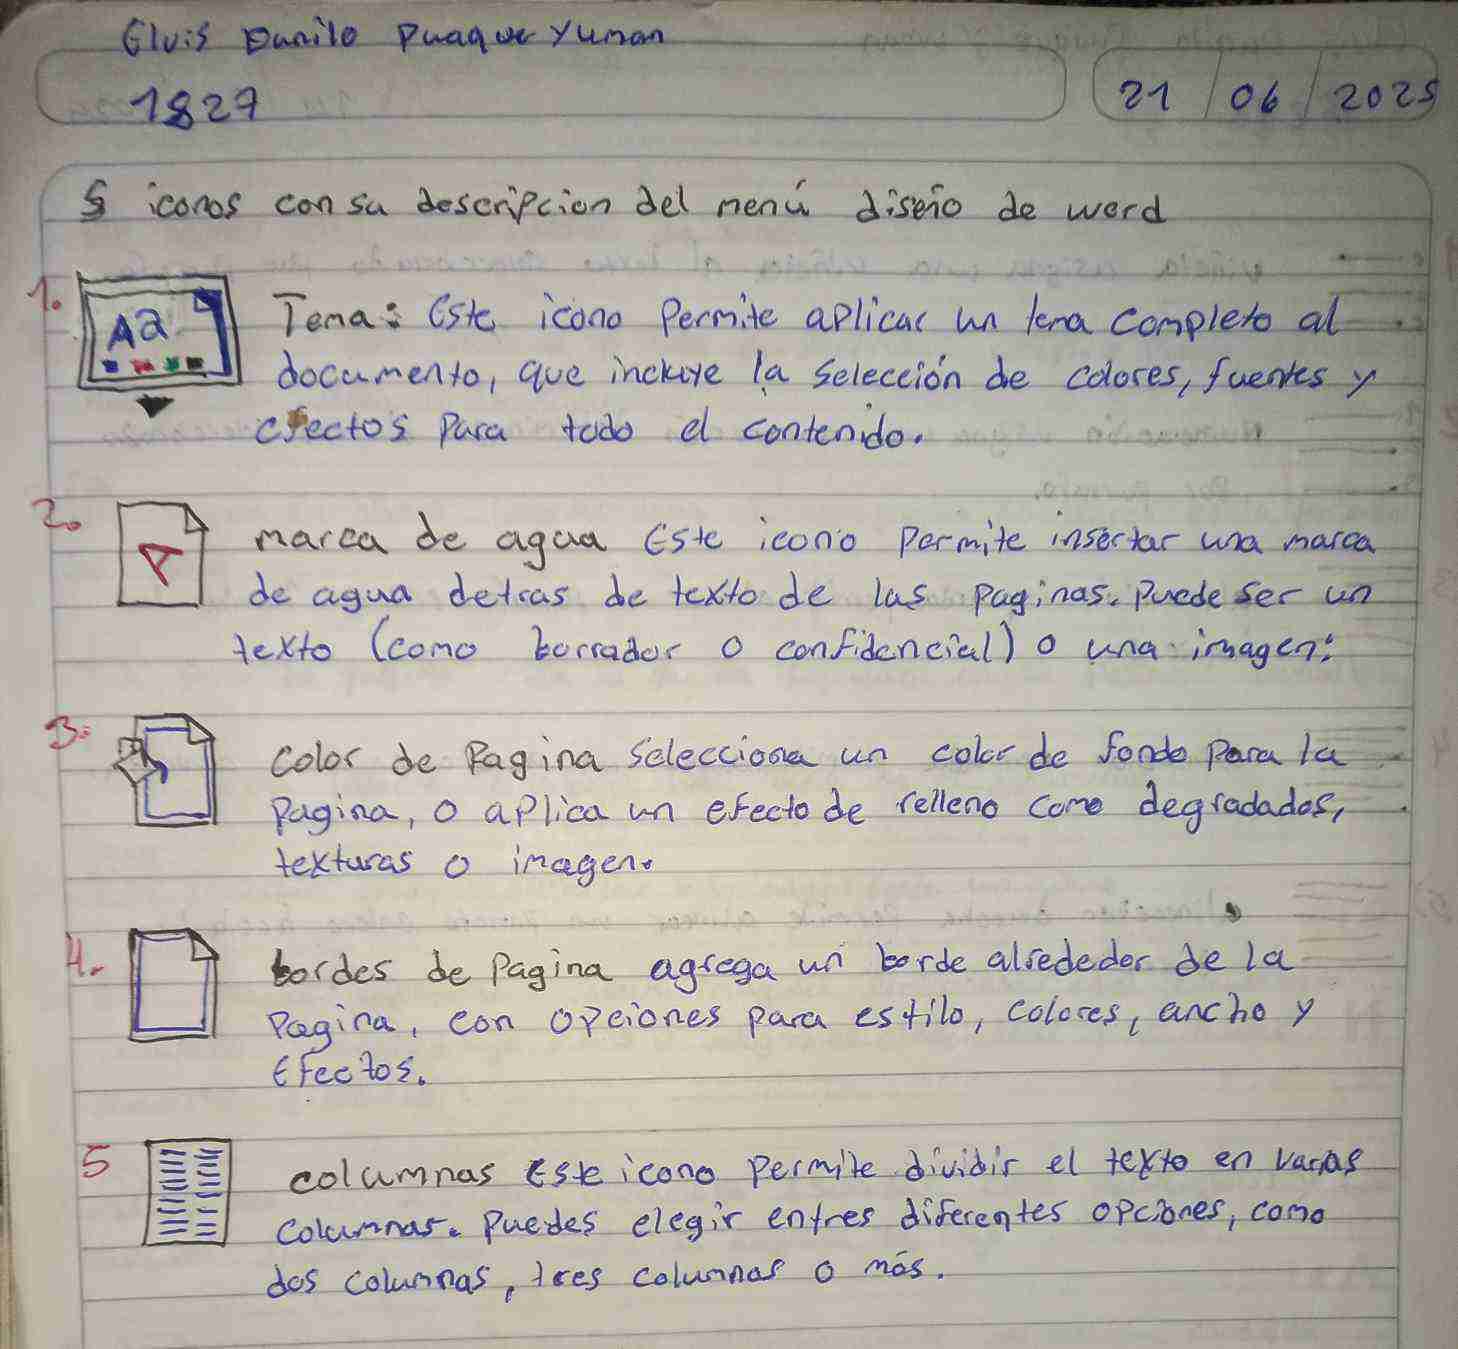 Elvis Danilo Puaque Yuman
1827
21 / 06 / 2025
5 iconos con su descripcion del menú diseño de word
1. Aa Tema: Este icono Permite aplicar un tema completo al
documento, que incluye la selección de colores, fuentes y
efectos Para todo el contenido.
2. A marca de agua Este icono Permite insertar una marca
de agua detras de texto de las paginas. Puede ser un
texto (como borrador o confidencial) o una imagen.
3. color de Pagina Selecciona un color de fondo Para la
Pagina, o aplica un efecto de relleno como degradados,
texturas o imagen.
4. bordes de Pagina agrega un borde alrededor de la
Pagina, con opciones para estilo, colores, ancho y
Efectos.
5 columnas Este icono Permite dividir el texto en varias
columnas. Puedes elegir entres diferentes opciones, como
dos columnas, tres columnas o más.